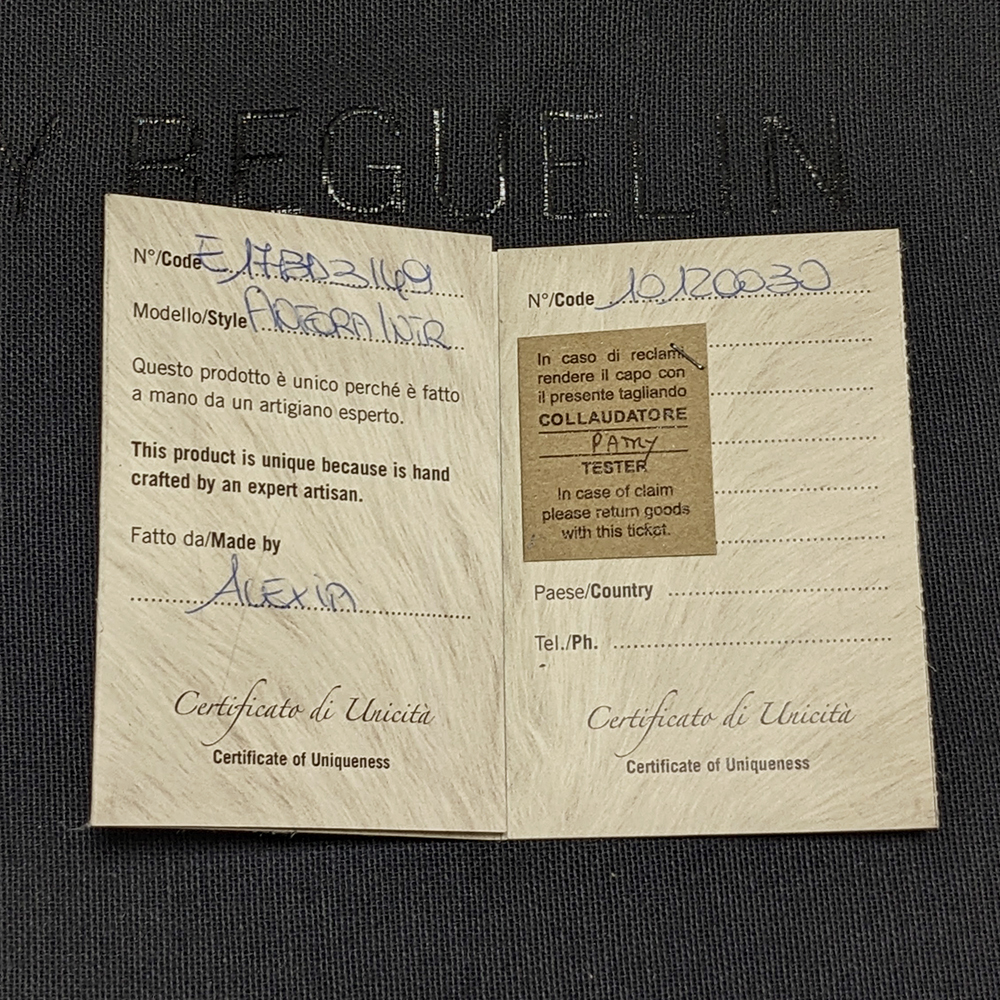 Y BEGUELIN
N°/Code E17BD3149
Modello/Style
Questo prodotto è unico perché è fatto
a mano da un artigiano esperto.
This product is unique because is hand
crafted by an expert artisan.
Fatto da/Made by
ALEXIA
Certificato di Unicità
Certificate of Uniqueness
N°/Code 10120030
In caso di reclami
rendere il capo con
il presente tagliando
COLLAUDATORE
PAMY
TESTER
In case of claim
please return goods
with this ticket.
Paese/Country
Tel./Ph.
Certificato di Unicità
Certificate of Uniqueness